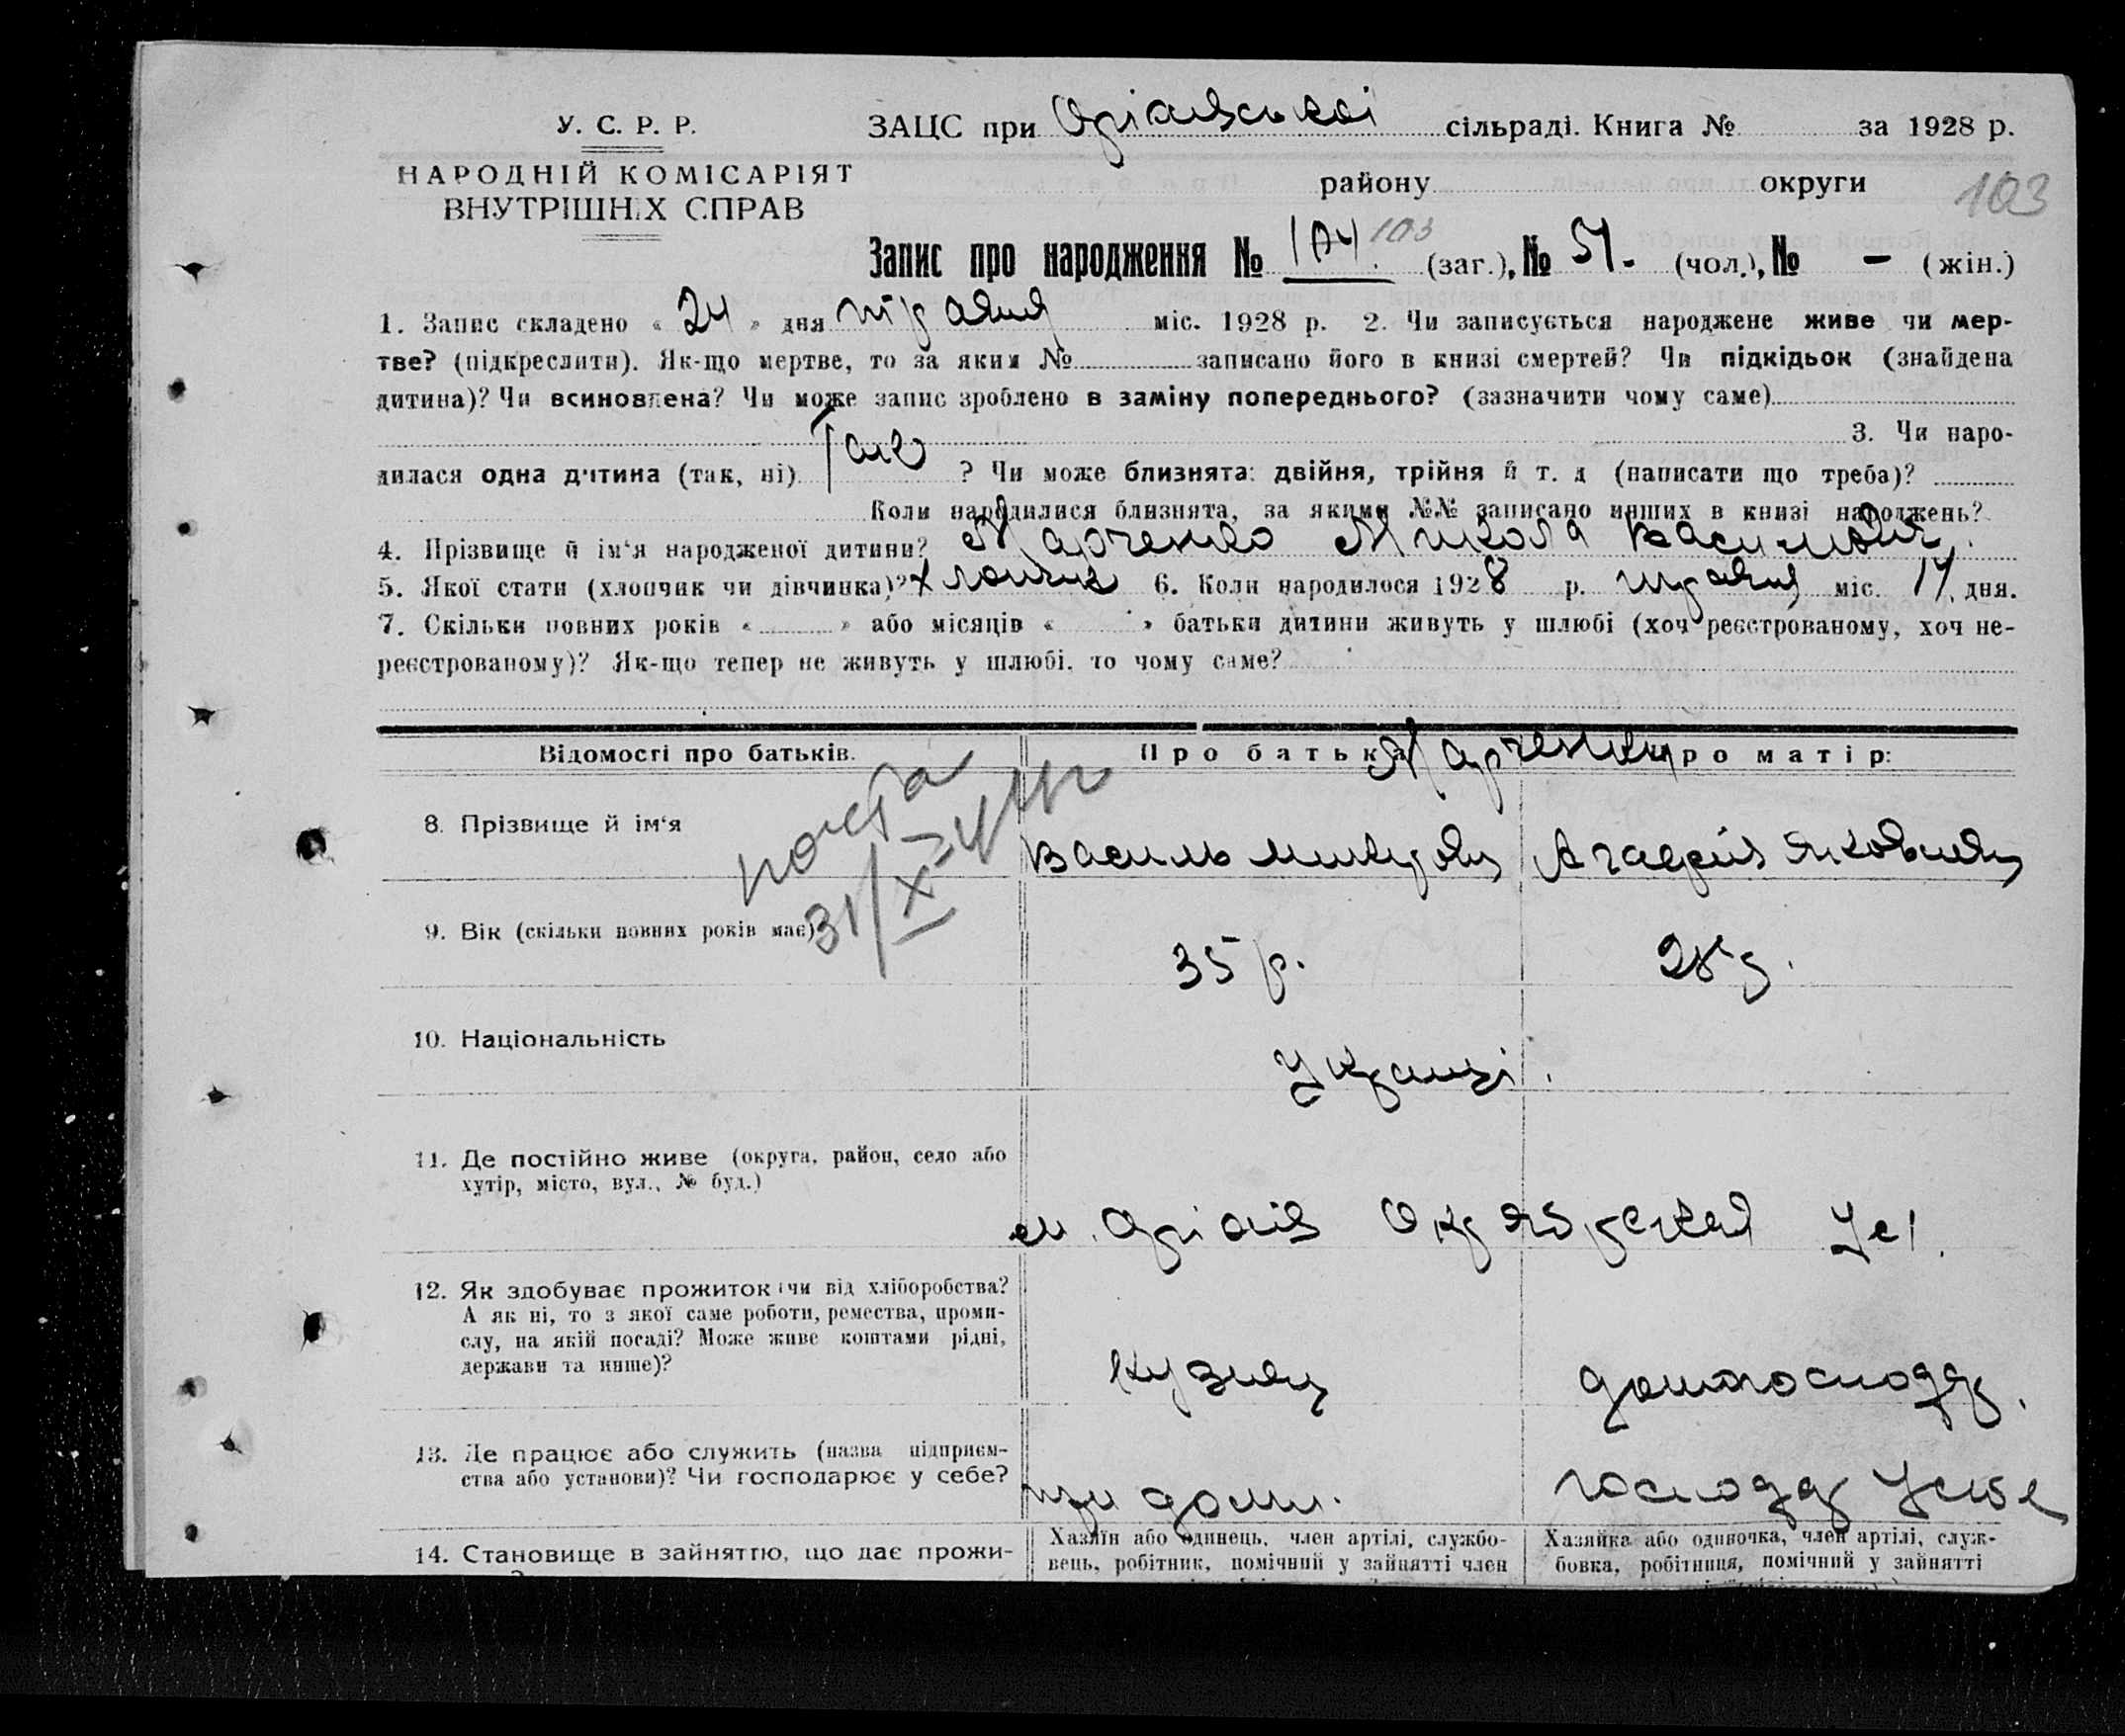 У. С. Р. Р.
НАРОДНІЙ КОМІСАРІЯТ
ВНУТРІШНіХ СПРАВ
ЗАЦС при Оріхівській сільраді. Книга № за 1928 р.
району округи
103
Запис про народження № 104. 103 (заг.), № 51. (чол.), № — (жін.)
1. Запис складено « 24 » дня травня міс. 1928 р. 2. Чи записується народжене живе чи мер-
тве? (підкреслити). Як-що мертве, то за яким № записано його в книзі смертей? Чи підкідьок (знайдена
дитина)? Чи всиновлена? Чи може запис зроблено в заміну попереднього? (зазначити чому саме)
3. Чи наро-
дилася одна дитина (так, ні) Так ? Чи може близнята: двійня, трійня й т. д (написати що треба)?
Коли народилися близнята, за якими №№ записано инших в книзі народжень?
4. Прізвище й ім‘я народженої дитини? Марченко Микола Васильович.
5. Якої стати (хлопчик чи дівчинка)? хлопчик 6. Коли народилося 1928 р. травня міс. 14 дня.
7. Скільки повних років « » або місяців « » батьки дитини живуть у шлюбі (хоч реєстрованому, хоч не-
реєстрованому)? Як-що тепер не живуть у шлюбі, то чому саме?
Відомості про батьків.
Про батька
Про матір:
Марченки
8. Прізвище й ім‘я
Василь
Яковлевна
9. Вік (скільки повних років має)
31/X
35 р.
28 р.
10. Національність
Українці.
11. Де постійно живе (округа, район, село або
хутір, місто, вул., № буд.)
12. Як здобуває прожиток (чи від хліборобства?
А як ні, то з якої саме роботи, ремества, проми-
слу, на якій посаді? Може живе коштами рідні,
держави та инше)?
Кузнец
домогосподар.
13. Де працює або служить (назва підприєм-
ства або установи)? Чи господарює у себе?
при доми.
господар у себе
14. Становище в зайняттю, що дає прожи-
Хазяїн або одинець, член артілі, службо-
вець, робітник, помічний у зайнятті член
Хазяйка або одиночка, член артілі, служ-
бовка, робітниця, помічний у зайнятті